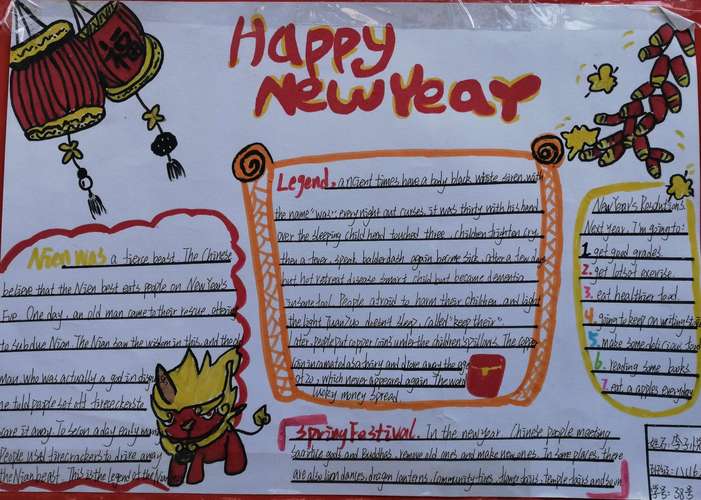 福
Happy
New Year
Legend. ancient times have a body black white siren with
the name "was", every night out curses, it was thirty with his hand
over the sleeping child head touched three, children frighten cry,
then a fever, speak balderdash again borne sick, after a few days
but hot retreat disease smart child but became dementia
insane fool. People afraid to harm their children and light
the light doesn't sleep, called "keep their"
Later, people put copper coins under the children's pillows. The copper
and drove away the age
at 20, which never appeared again. The
lucky money spread.
New Year's Resolutions
Next year, I'm going to:
1. get good grades
2. get lots of exercise
3. eat healthier food
4. going to keep on writing
5. make some delicious
6. reading some books
7. eat a apples everyday
Nien was a fierce beast. The Chinese
believe that the Nien best eats people on New Year's
Eve. One day, an old man came to their rescue, offering
to subdue Nien. The Nien saw the wisdom in this, and the
Now who was actually a god in
he told people set off firecrackers to
scare it away. To scare
People used firecrackers to drive away
the Nien beast. This is the legend of the Nien
Spring Festival. In the new year, Chinese people meeting
sacrifice gods and Buddhas, remove old ones and make new ones. In some places, there
are also lion dances, dragon lanterns, community fires,
姓名:李
学号:38号